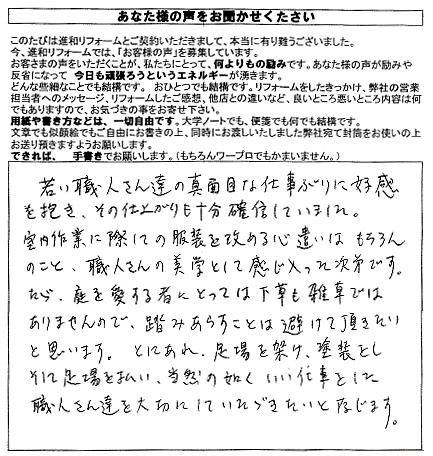 あなた様の声をお聞かせください
このたびは進和リフォームとご契約いただきまして、本当に有り難うございました。
今、進和リフォームでは、「お客様の声」を募集しています。
お客さまの声をいただくことが、私たちにとって、何よりもの励みです。あなた様の声が励みや
反省になって 今日も頑張ろうというエネルギーが湧きます。
どんな些細なことでも結構です。 おひとつでも結構です。リフォームをしたきっかけ、弊社の営業
担当者へのメッセージ、リフォームしたご感想、他店との違いなど、良いところ悪いところ内容は何
でもありますので、お気づきの事をお寄せ下さい。
用紙や書き方などは、一切自由です。大学ノートでも、便箋でも何でも結構です。
文章でも似顔絵でもご自由にお書きの上、同時にお渡しいたしました弊社宛て封筒をお使いの上
お送り頂きますようお願いします。
できれば、 手書きでお願いします。(もちろんワープロでもかまいません。)
若い職人さん達の真面目な仕事ぶりに好感
を抱き、その仕上がりも十分確信していました。
室内作業に際しての服装を改める心遣いは もちろん
のこと、職人さんの美学として感じ入った次第です。
ただ、庭を愛する者にとっては下草も雑草では
ありませんので、踏みあらすことは避けて頂きたい
と思います。 とにあれ、足場を架け、塗装をし
そして足場を払い、当然の如く いい仕事をした
職人さん達を大切にしていただきたいと存じます。